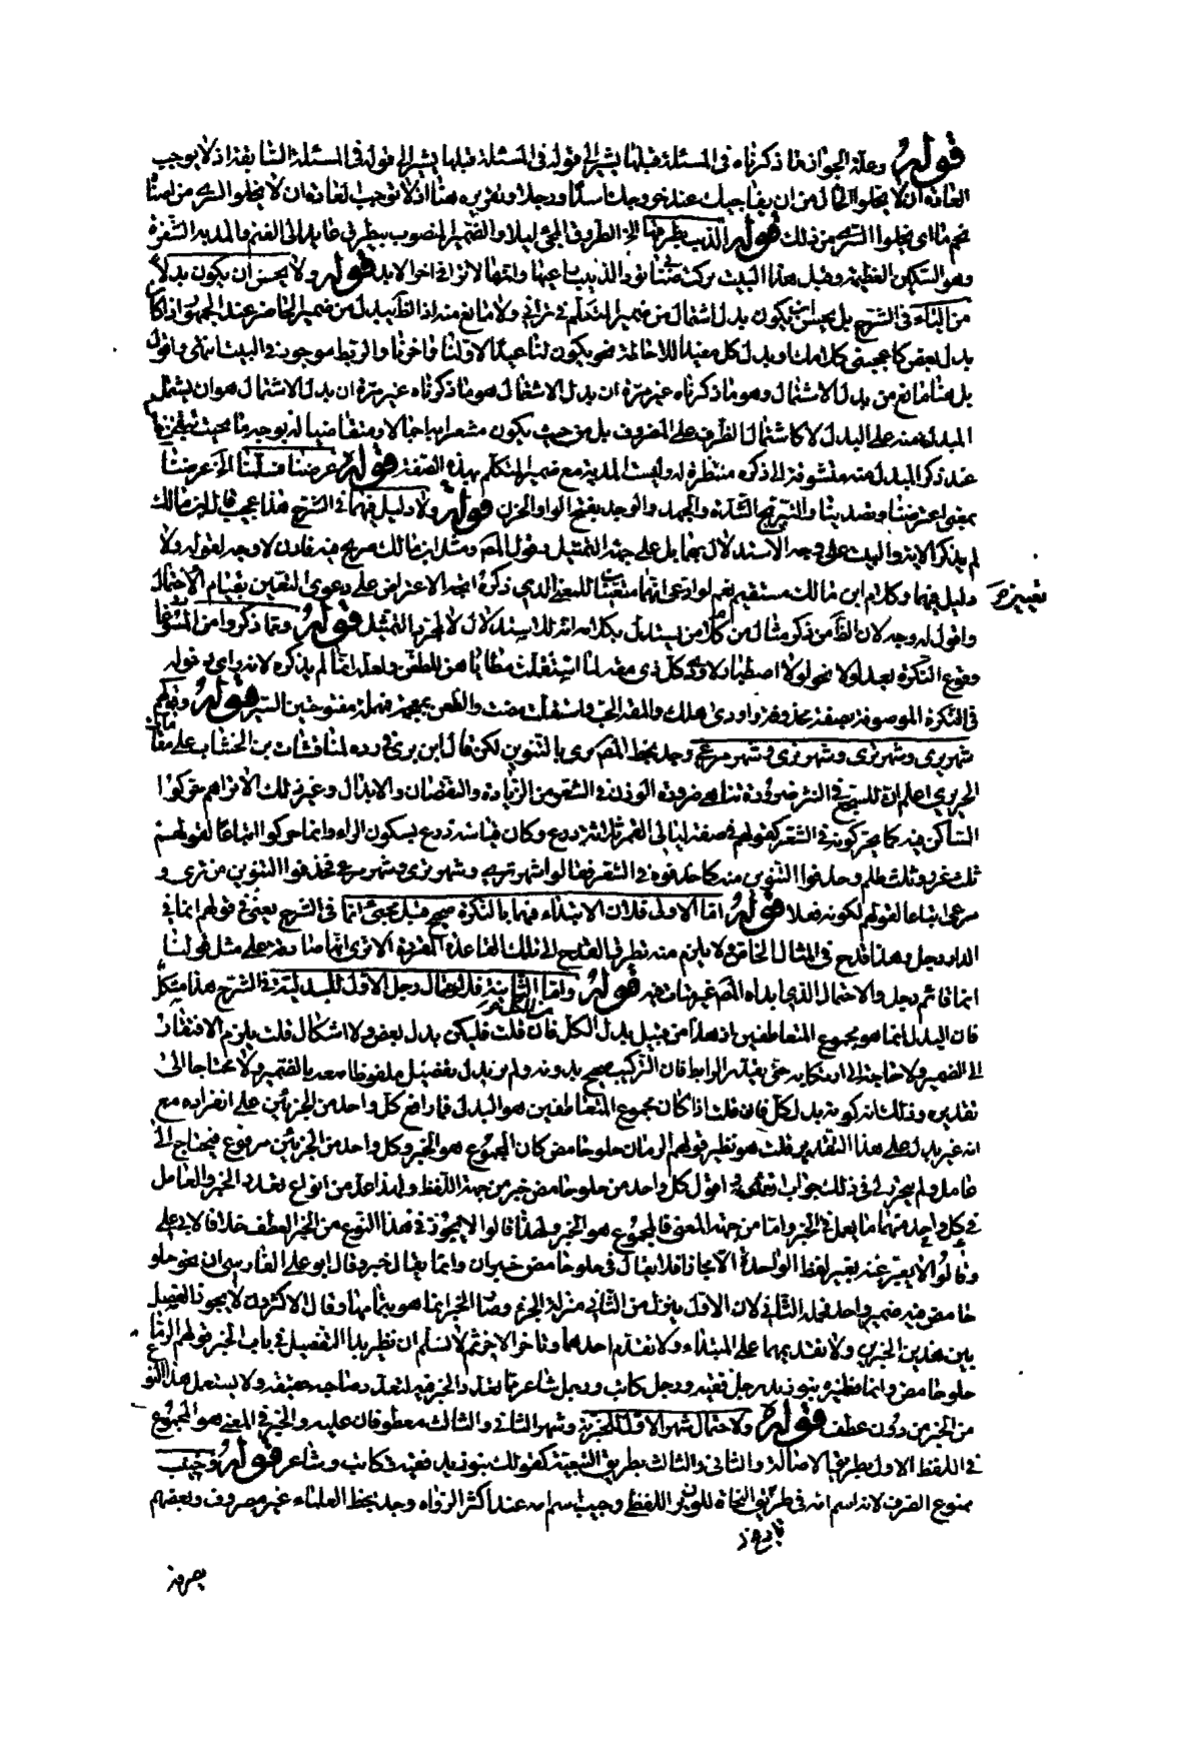 قوله وعلة الجواز ما ذكرناه في المسئلة قبلها يشير الى قوله في المسئلة قبلها يشير الى قوله في المسئلة السابقة اذ لا يوجب
العادة ان لا يخلوا الحال من ان يفاجيك عند خروجك اسدًا ورجلا وتقريره هنا اذ لا توجب العادة ان لا يخلوا السرى من اضاءة
نجم ما اى يخلوا السرى من ذلك قوله الذيب يطرقها الخ الطروق المجئ ليلا والضمير المنصوب بيطرق عايد الى الغنم والمدية الشفرة
وهو السكين العظيمة وقبل هذا البيت تركت ضئنا تود الذيب راعيها وانها لا تراني اخر الابد قوله ولا يحسن ان يكون بدلا
من الياء في الشرح بل يحسن ان يكون بدل اشتمال من ضمير المتكلم في تراني ولا مانع منه اذ الظ يبدل من ضمير الحاضر عند الجمهور اذا كان
بدل بعض كاعجبني كلامك او بدل كل مفيدا للاحاطة نحو يكون لنا عيدًا لاولنا واخرنا والربط موجود في البيت انتهى واقول
بل هنا مانع من بدل الاشتمال وهو ما ذكرناه غير مرة ان بدل الاشتمال هو ما ذكرناه غير مرة ان بدل الاشتمال هو ان يشتمل
المبدل منه على البدل لا كاشتمال الظرف على المظروف بل من حيث يكون مشعرا به اجمالا ومتقاضيا له بوجه ما بحيث تبقى النفس
عند ذكر المبدل منه متشوقة الى ذكره منتظرة له وليست المدية مع ضمير المتكلم بهذه الصفة قوله عرضنا فسلمنا الخ عرضنا
بمعنى اعترضنا وتصدينا والتبريح الشدة والجهد والوجد بفتح الواو الحزن قوله ولا دليل فيهما في الشرح هذا عجيب فابن مالك
لم يذكر الاية والبيت على وجه الاستدلال بهما بل على جهة التمثيل وقول المص ومثل ابن مالك صريح فيه فاذن لا وجه لقوله ولا
دليل فيهما وكلام ابن مالك مستقيم نعم لو ادعى انهما متعينتان للمعنى الذي ذكره اتجه الاعتراض على دعوى التعيين بقيام الاحتمال
واقول له وجه لان الظ من ذكر مثال من كلام من يستدل بكلامه ان ذلك استدلال لا مجرد التمثيل قوله ومما ذكروا من المسوغات
وقوع النكرة بعد لولا نحو لولا اصطبار لاودى كل ذي مقة لما استقلت مطاياهن للظعن ولعله انما لم يذكره لانه راى دخوله
في النكرة الموصوفة بصفة محذوفة واودى هلك والمقة الحب واستقلت مضت والظعن بمعجمة فمهملة مفتوحتين السير قوله وقولهم
شهر ثرى وشهر ترى وشهر مرعى وجد بخط المص ثرى بالتنوين لكن قال ابن برى في رده لمناقشات بن الخشاب على مقامات
الحريري اعلم ان للسجع في النثر ضرورة تناسب ضرورة الوزن في الشعر من الزيادة والنقصان والابدال وغير ذلك الا تراهم حركوا
الساكن فيه كما يحركونه في الشعر كقولهم في صفة ليالي القمر ثلاثة درع وكان قياسه درع بسكون الراء وانما حركوا اتباعًا لقولهم
ثلث غرر وثلث ظلم وحذفوا التنوين منه كما حذفوه في الشعر فقالوا شهر ثرى وشهر ترى وشهر مرعى فحذفوا التنوين من ثرى و
مرعى اتباعا لقولهم ترى لكونه فعلا قوله اما الاولى فلان الابتداء فيها بالنكرة صحيح قبل مجئ انما في الشرح يعني في قولهم انما في
الدار رجل وهذا قدح في المثال الخاص ولا يلزم منه تطرق القدح الى تلك القاعدة المقررة الا ترى انها صادقة على مثل قولنا
انما قائم رجل والاحتمال الذي ابداه المص غير متات فيه قوله واما الثانية فلاحتمال رجل الاول للبدلية في الشرح هذا مشكل
فان البدل انما هو مجموع المتعاطفين اذ هذا من قبيل بدل الكل فان قلت فليكن بدل بعض ولا اشكال قلت يلزم الافتقار
الى الضمير ولا حاجة الى ارتكابه حتى يقدر الرابط فان التركيب صحيح بدونه ولم نر بدل تفصيل ملفوظا معه بالضمير ولا محتاجا الى
تقديره وذلك انه كونه بدل كل فان قلت اذا كان مجموع المتعاطفين هو البدل فما رافع كل واحد من الجزئين على انفراده مع
انه غير بدل على هذا التقدير قلت هو نظير قولهم الرمان حلو حامض كان المجموع هو الخبر وكل واحد من الجزئين مرفوع فيحتاج الى
عامل ولم يحرر لي في ذلك جواب انتهى اقول كل واحد من حلو حامض خبر من جهة اللفظ ولهذا عد من انواع تعدد الخبر والعامل
في كل واحد منهما ما يعمل في الخبر واما من جهة المعنى فالمجموع هو الخبر ولهذا قالوا لا يجوز في هذا النوع من الخبر العطف خلافا لابي علي
وقالوا لا يعبر عنه بغير لفظ الواحدة الا مجازا فلا يقال في حلو حامض خبران وانما يقال خبر وقال ابو علي الفارسي ان نحو حلو
حامض فيه ضمير واحد تحمله الثاني لان الاول ينزل من الثاني منزلة الجزء وصار الخبر انما هو بتمامها وقال الاكثرون لا يجوز الفصل
بين هذين الخبرين ولا تقديمهما على المبتداء ولا تقدم احدهما وتاخر الاخر ثم لا نسلم ان نظير بدل التفصيل في باب الخبر قولهم الرمان
حلو حامض وانما نظيره بنو زيد رجل فقيه ورجل كاتب ورجل شاعر مما تعدد الخبر فيه لتعدد صاحبه حقيقة ولا يستعمل هذا النوع
من الخبر من دون عطف قوله ولاحتمال شهر الاول للخبرية وشهر الثاني والثالث معطوفان عليه والخبر في المعنى هو المجموع
في اللفظ الاول بطريق الاصالة والثاني والثالث بطريق التبعية كقولك بنو زيد فقيه وكاتب وشاعر قوله وحبيب
ممنوع الصرف لانه اسم امه في طريق النحاة للوزير اللفظ وحبيب اسم امه عند اكثر الرواه وجد بخط العلماء غير مصروف وبعضهم
يصرفه